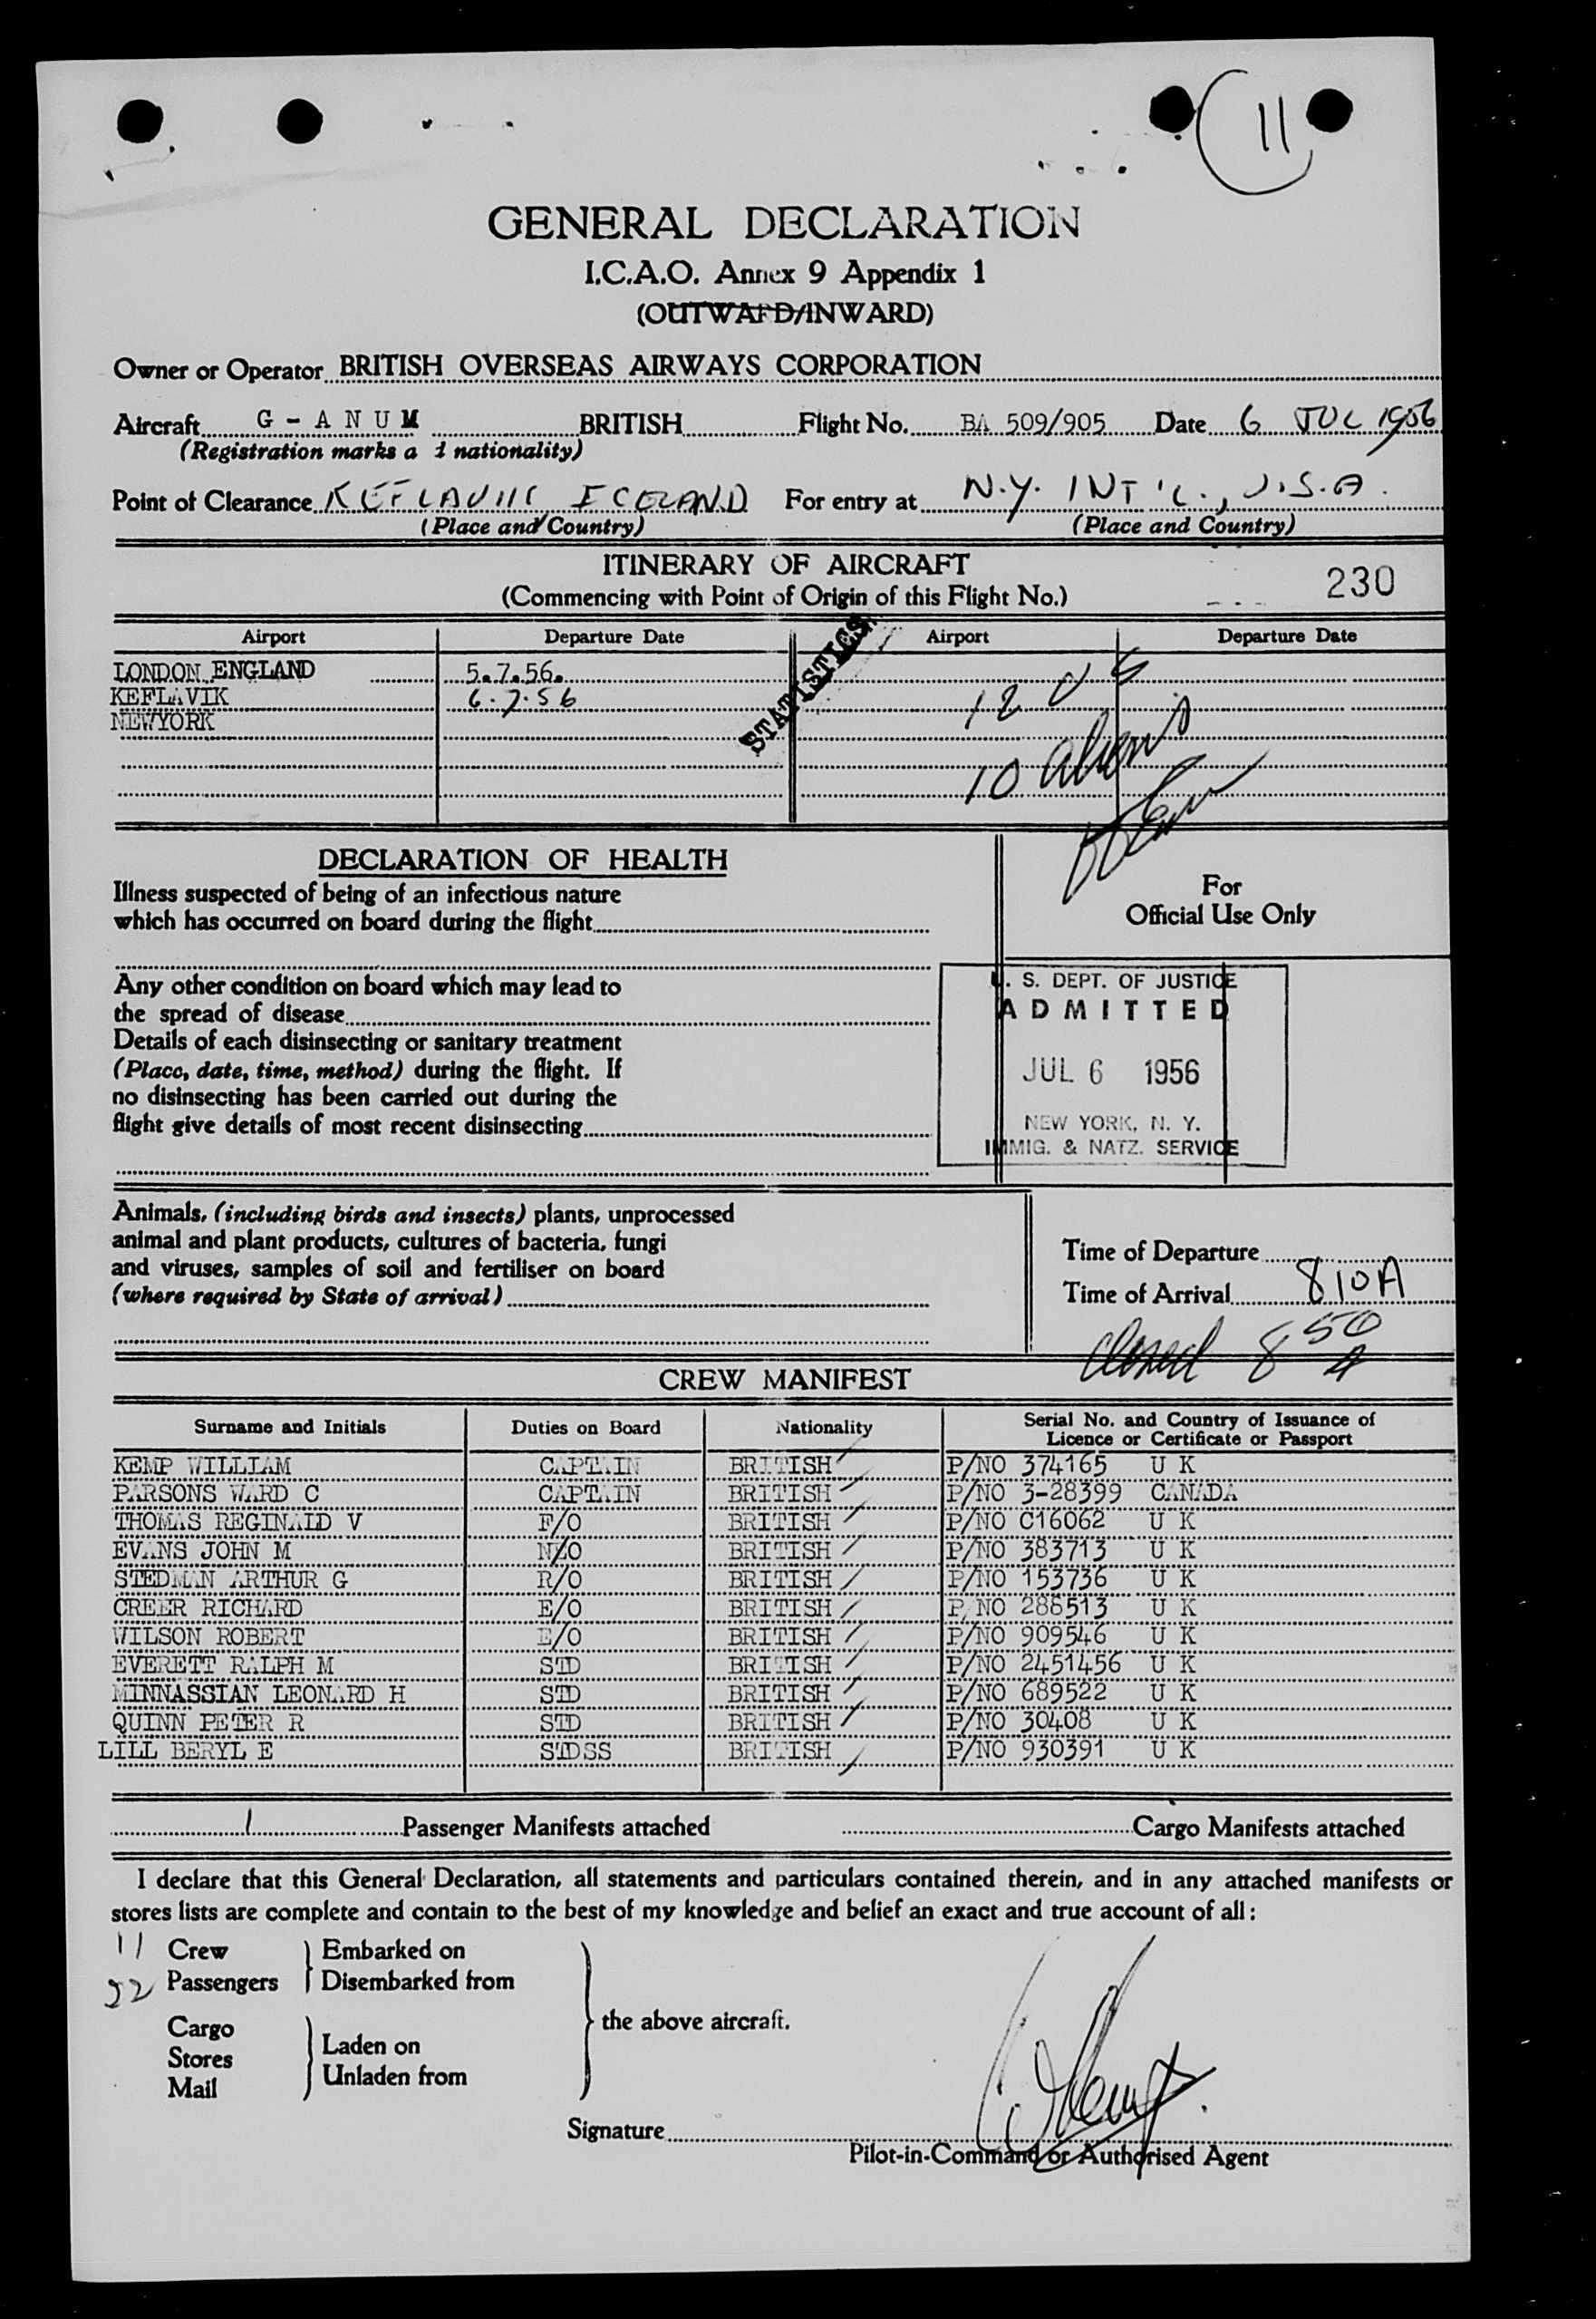 11
GENERAL DECLARATION
I.C.A.O. Annex 9 Appendix 1
(OUTWARD/INWARD)
Owner or Operator BRITISH OVERSEAS AIRWAYS CORPORATION
Aircraft G - A N U M BRITISH Flight No. BA 509/905 Date 6 JUL 1956
(Registration marks a d nationality)
Point of Clearance KEFLAVIK ICELAND For entry at N.Y. INT'L., U.S.A.
(Place and Country) (Place and Country)
ITINERARY OF AIRCRAFT
(Commencing with Point of Origin of this Flight No.) 230
Airport Departure Date Airport Departure Date
STATISTICS
LONDON ENGLAND 5.7.56.
KEFLAVIK 6.7.56 12 US
NEWYORK
10 aliens
DECLARATION OF HEALTH
Illness suspected of being of an infectious nature
which has occurred on board during the flight
For
Official Use Only
Any other condition on board which may lead to
the spread of disease
Details of each disinsecting or sanitary treatment
(Place, date, time, method) during the flight. If
no disinsecting has been carried out during the
flight give details of most recent disinsecting
U. S. DEPT. OF JUSTICE
ADMITTED
JUL 6 1956
NEW YORK, N. Y.
IMMIG. & NATZ. SERVICE
Animals, (including birds and insects) plants, unprocessed
animal and plant products, cultures of bacteria, fungi
and viruses, samples of soil and fertiliser on board
(where required by State of arrival)
Time of Departure
Time of Arrival 810A
Closed 850 A
CREW MANIFEST
Surname and Initials Duties on Board Nationality Serial No. and Country of Issuance of
Licence or Certificate or Passport
KEMP WILLIAM CAPTAIN BRITISH P/NO 374165 U K
PARSONS WARD C CAPTAIN BRITISH P/NO 3-28399 CANADA
THOMAS REGINALD V F/O BRITISH P/NO C16062 U K
EVANS JOHN M N/O BRITISH P/NO 383713 U K
STEDMAN ARTHUR G R/O BRITISH P/NO 153736 U K
CREER RICHARD E/O BRITISH P/NO 286513 U K
WILSON ROBERT E/O BRITISH P/NO 909546 U K
EVERETT RALPH M STD BRITISH P/NO 2451456 U K
MINNASSIAN LEONARD H STD BRITISH P/NO 689522 U K
QUINN PETER R STD BRITISH P/NO 30408 U K
LILL BERYL E STDSS BRITISH P/NO 930391 U K
1 Passenger Manifests attached Cargo Manifests attached
I declare that this General Declaration, all statements and particulars contained therein, and in any attached manifests or
stores lists are complete and contain to the best of my knowledge and belief an exact and true account of all:
11 Crew Embarked on
22 Passengers Disembarked from
the above aircraft.
Cargo
Stores Laden on
Mail Unladen from
Signature
Pilot-in-Command or Authorised Agent